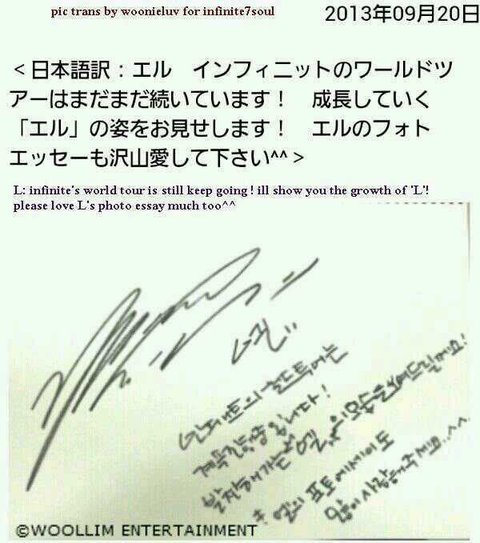 pic trans by woonieluv for infinite7soul
2013年09月20日
＜日本語訳：エル　インフィニットのワールドツ
アーはまだまだ続いています！　成長していく
「エル」の姿をお見せします！　エルのフォト
エッセーも沢山愛して下さい^^＞
L: infinite's world tour is still keep going! ill show you the growth of 'L'!
please love L's photo essay much too^^
인피니트의 월드투어는
계속 입니다!
발전해가는 엘 의 모습을 보여드릴게요!
엘의 포토에세이도
많이 사랑해주세요..^^
©WOOLLIM ENTERTAINMENT